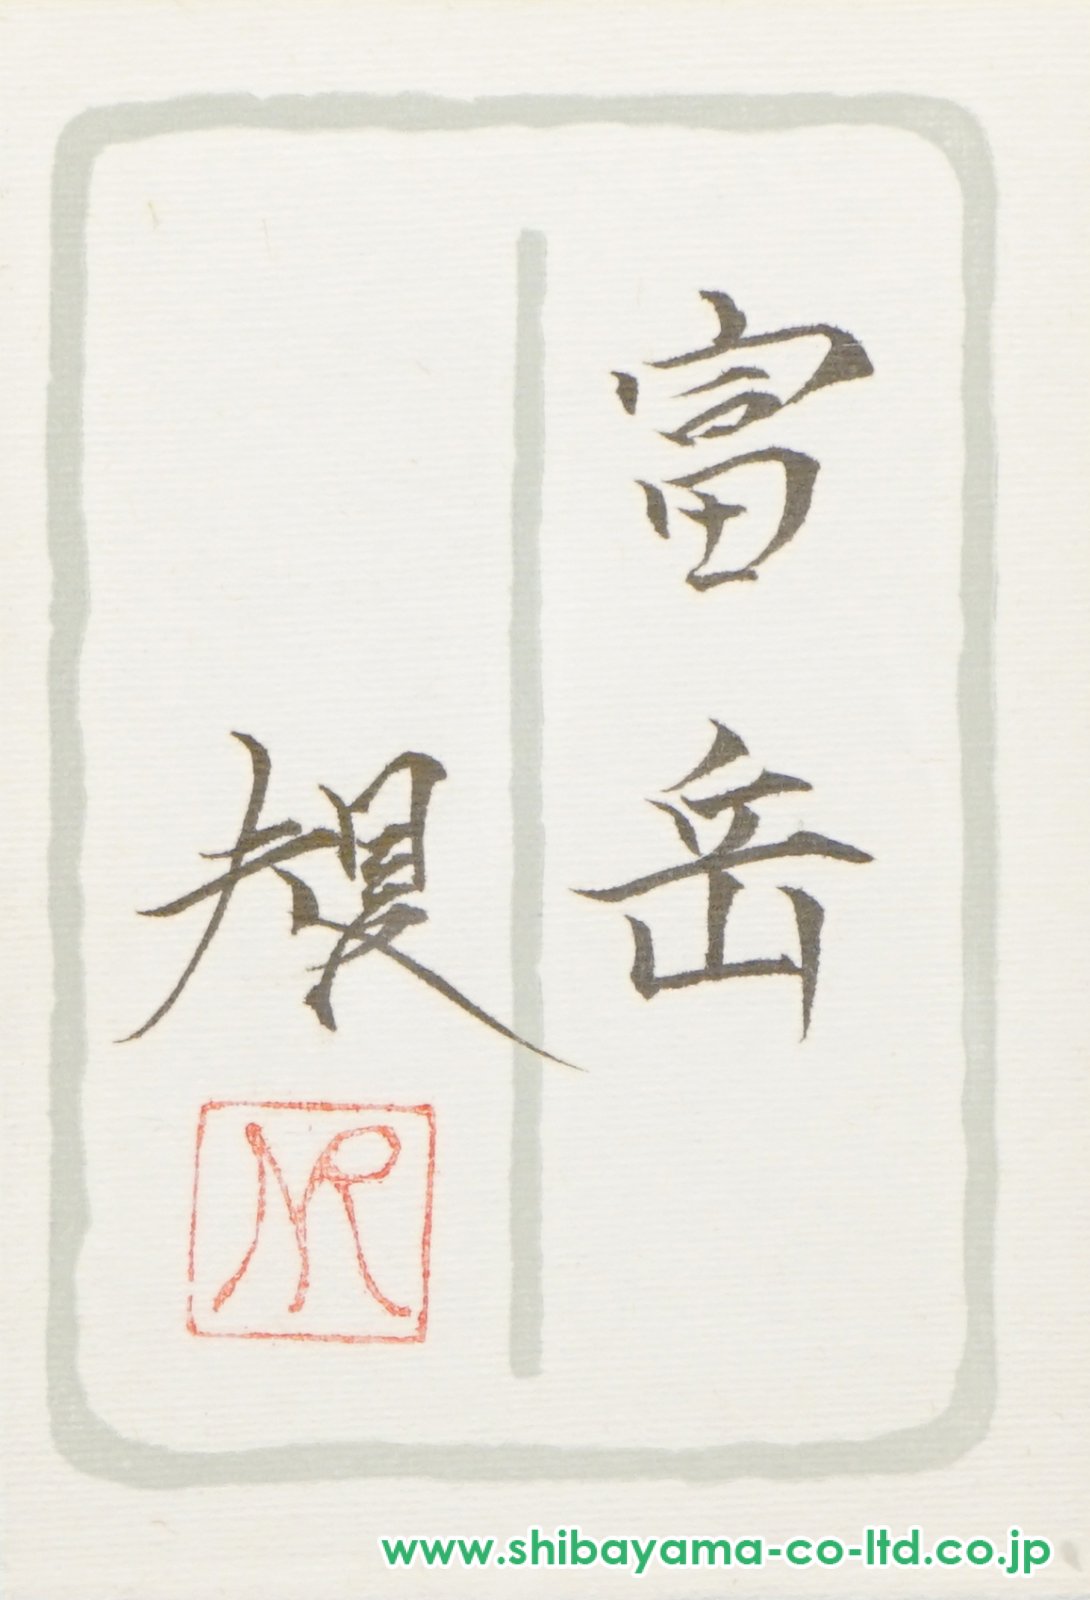 富岳
www.shibayama-co-ltd.co.jp